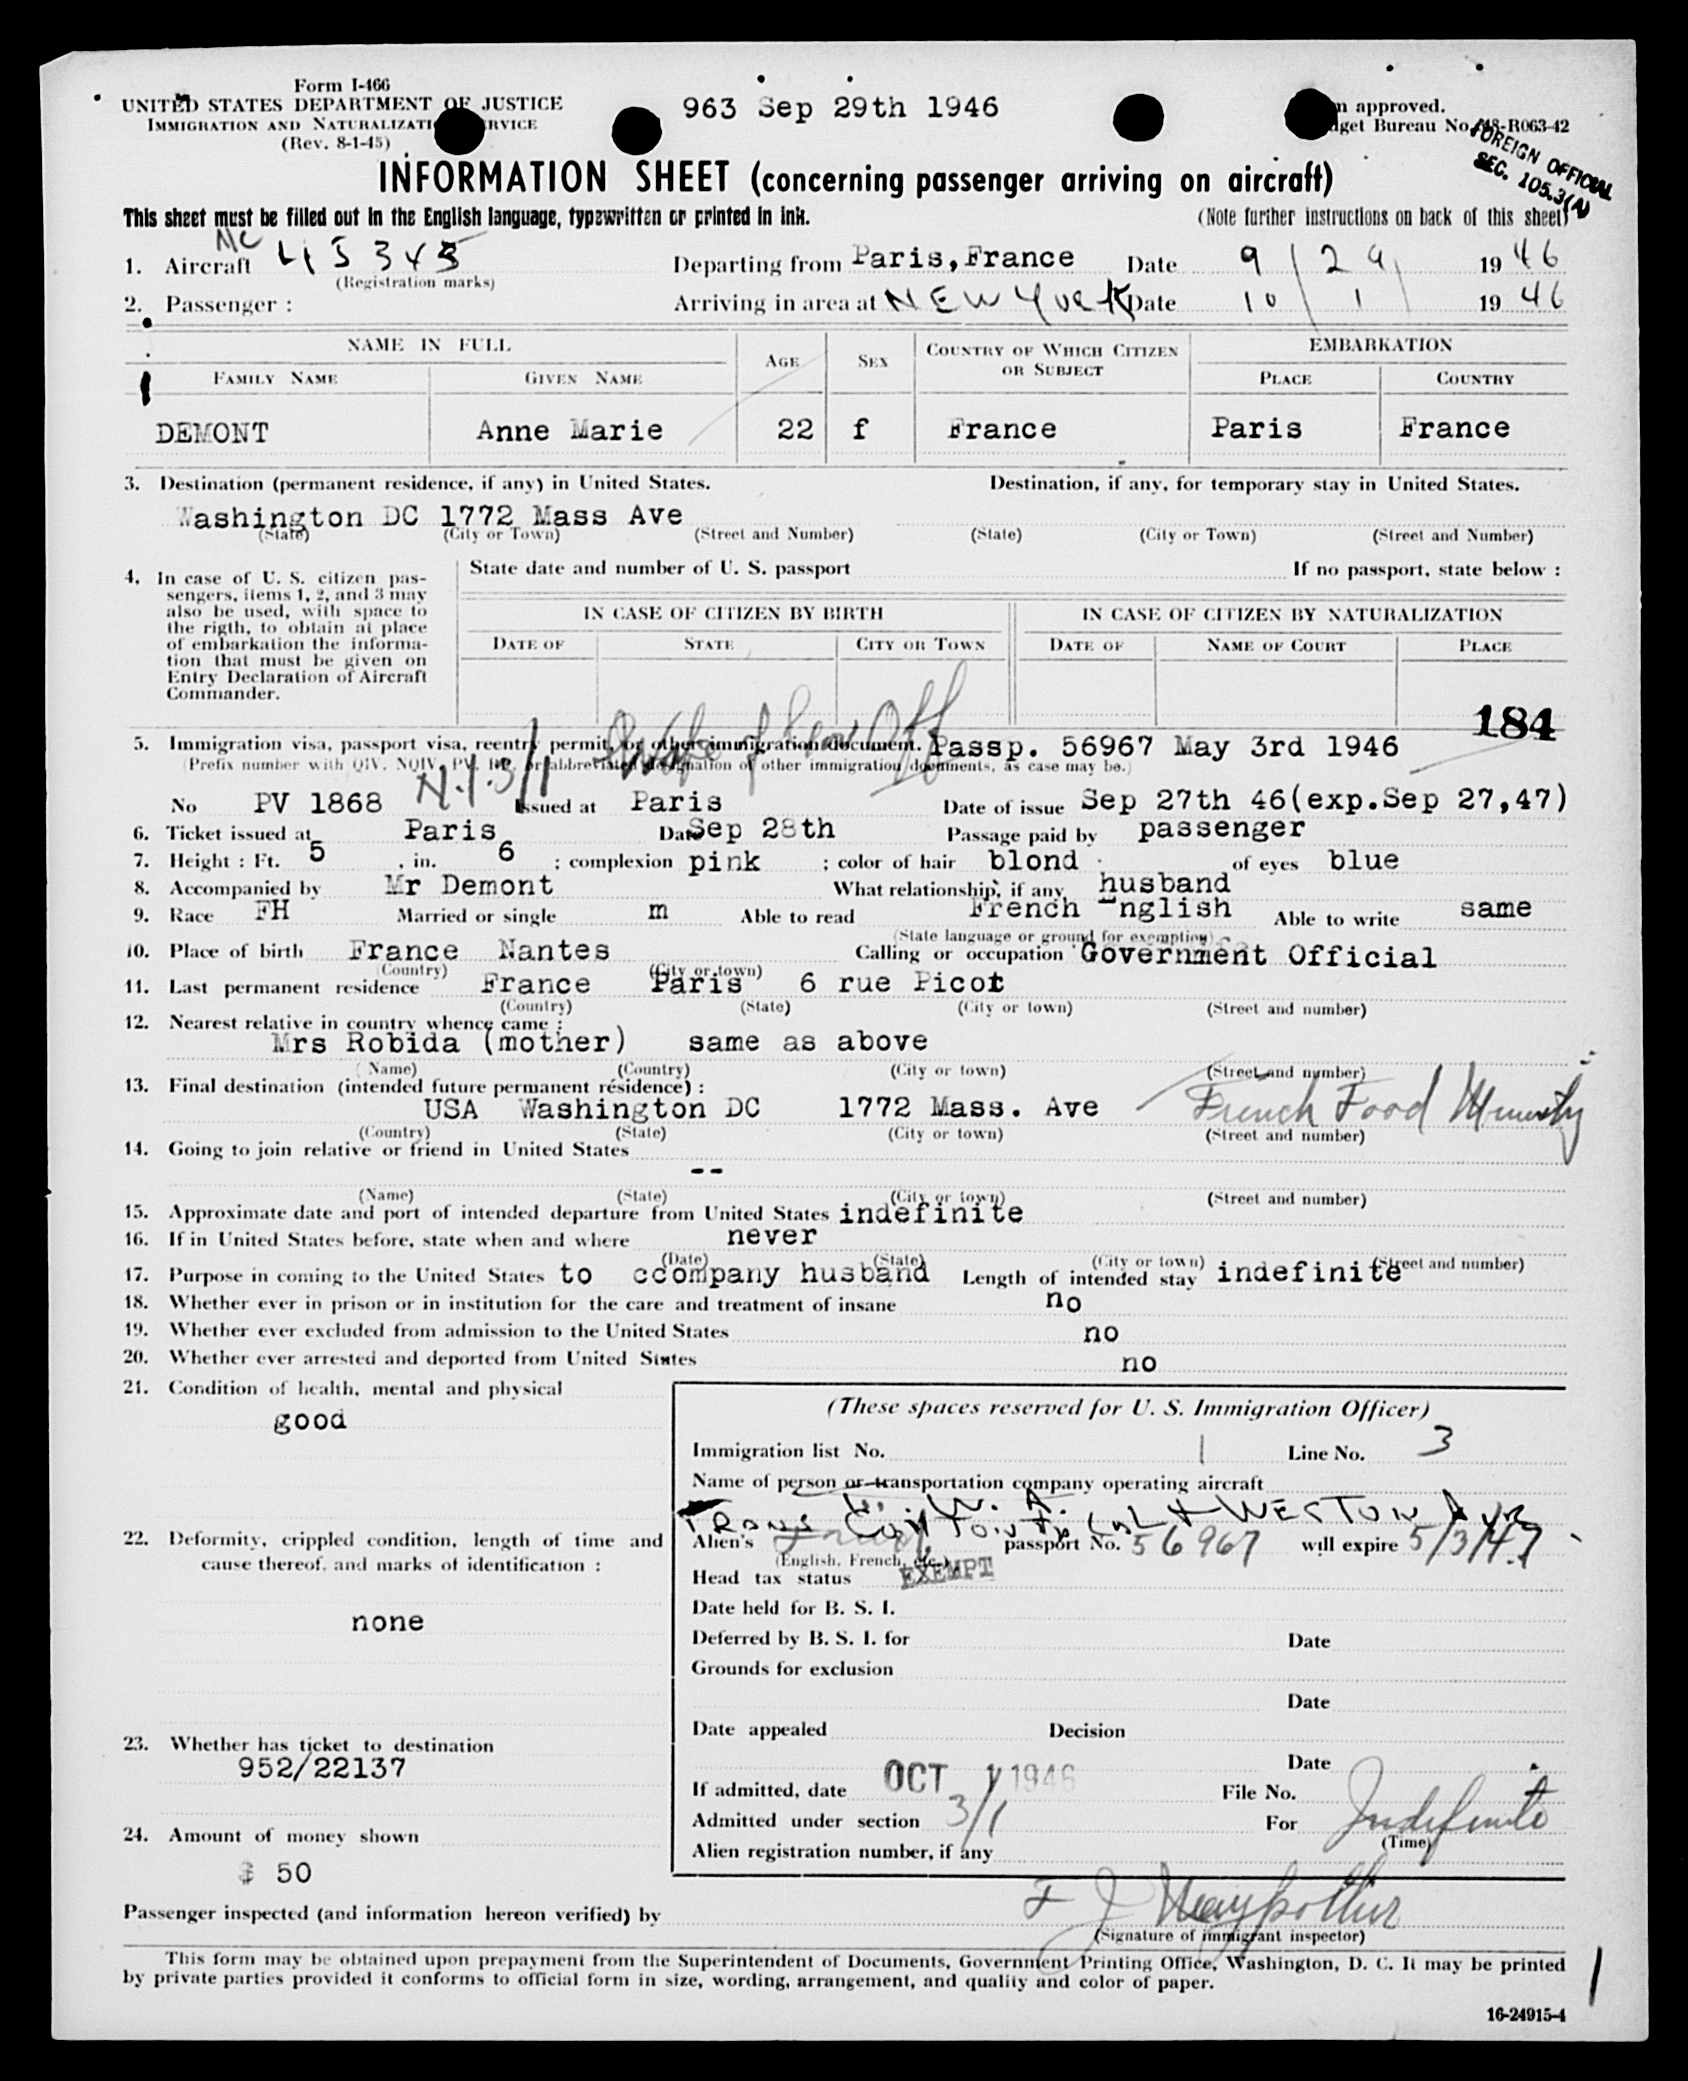 Form I-466
UNITED STATES DEPARTMENT OF JUSTICE
IMMIGRATION AND NATURALIZATION SERVICE
(Rev. 8-1-45)
963 Sep 29th 1946
approved.
Bureau No. R063-42
FOREIGN OFFICIAL
SEC. 105.3(A)
INFORMATION SHEET (concerning passenger arriving on aircraft)
This sheet must be filled out in the English language, typewritten or printed in ink.
(Note further instructions on back of this sheet)
NC
1. Aircraft 45345 Departing from Paris,France Date 9/29/ 1946
(Registration marks)
2. Passenger : Arriving in area at NEW York Date 10/1/ 1946
NAME IN FULL AGE SEX COUNTRY OF WHICH CITIZEN OR SUBJECT EMBARKATION
FAMILY NAME GIVEN NAME PLACE COUNTRY
DEMONT Anne Marie 22 f France Paris France
3. Destination (permanent residence, if any) in United States. Destination, if any, for temporary stay in United States.
Washington DC 1772 Mass Ave
(State) (City or Town) (Street and Number) (State) (City or Town) (Street and Number)
4. In case of U. S. citizen pas-
sengers, items 1, 2, and 3 may
also be used, with space to
the rigth, to obtain at place
of embarkation the informa-
tion that must be given on
Entry Declaration of Aircraft
Commander.
State date and number of U. S. passport If no passport, state below :
IN CASE OF CITIZEN BY BIRTH IN CASE OF CITIZEN BY NATURALIZATION
DATE OF STATE CITY OR TOWN DATE OF NAME OF COURT PLACE
184
Wife of Off
5. Immigration visa, passport visa, reentry permit, or other immigration document. Passp. 56967 May 3rd 1946
(Prefix number with QIV, NQIV, PV, RP, or abbreviated designation of other immigration documents, as case may be.)
No PV 1868 Issued at Paris Date of issue Sep 27th 46(exp.Sep 27,47)
6. Ticket issued at Paris Date Sep 28th Passage paid by passenger
7. Height : Ft. 5 , in. 6 ; complexion pink ; color of hair blond of eyes blue
8. Accompanied by Mr Demont What relationship, if any husband
9. Race FH Married or single m Able to read French nglish Able to write same
(State language or ground for exemption)
10. Place of birth France Nantes Calling or occupation Government Official
(Country) (City or town)
11. Last permanent residence France Paris 6 rue Picot
(Country) (State) (City or town) (Street and number)
12. Nearest relative in country whence came :
Mrs Robida (mother) same as above
(Name) (Country) (City or town) (Street and number)
13. Final destination (intended future permanent résidence) :
USA Washington DC 1772 Mass. Ave French Food Ministry
(Country) (State) (City or town) (Street and number)
14. Going to join relative or friend in United States
--
(Name) (State) (City or town) (Street and number)
15. Approximate date and port of intended departure from United States indefinite
16. If in United States before, state when and where never
(Date) (State) (City or town) (Street and number)
17. Purpose in coming to the United States to ccompany husband Length of intended stay indefinite
18. Whether ever in prison or in institution for the care and treatment of insane no
19. Whether ever excluded from admission to the United States no
20. Whether ever arrested and deported from United States no
21. Condition of health, mental and physical
good
22. Deformity, crippled condition, length of time and
cause thereof, and marks of identification :
none
23. Whether has ticket to destination
952/22137
24. Amount of money shown
$ 50
(These spaces reserved for U. S. Immigration Officer)
Immigration list No. 1 Line No. 3
Name of person or transportation company operating aircraft
T. W. A.
Trans Con & WESTERN Air
Alien's passport No. 56967 will expire 5/3/47
(English, French, etc.)
Head tax status EXEMPT
Date held for B. S. I.
Deferred by B. S. I. for Date
Grounds for exclusion
Date
Date appealed Decision
Date
If admitted, date OCT 1 1946 File No.
Admitted under section 3/1 For Indefinite
(Time)
Alien registration number, if any
Passenger inspected (and information hereon verified) by
(Signature of immigrant inspector)
This form may be obtained upon prepayment from the Superintendent of Documents, Government Printing Office, Washington, D. C. It may be printed
by private parties provided it conforms to official form in size, wording, arrangement, and quality and color of paper.
16-24915-4